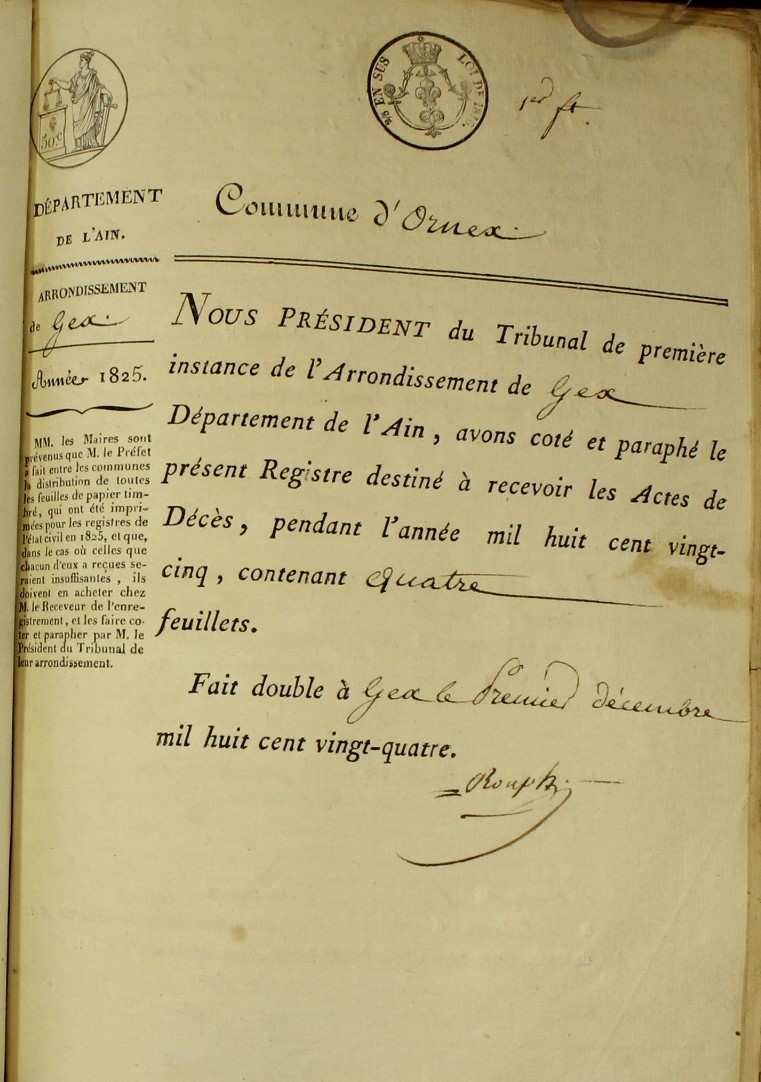 50 c.
25 EN SUS LOI DE 1816.
1er ft.
DÉPARTEMENT
DE L'AIN.
Commune d'Ornex.
ARRONDISSEMENT
de Gex.
Année 1825.
MM. les Maires sont
prévenus que M. le Préfet
a fait entre les communes
la distribution de toutes
les feuilles de papier tim-
bré, qui ont été impri-
mées pour les registres de
l'état civil en 1825, et que,
dans le cas où celles que
chacun d'eux a reçues se-
raient insuffisantes, ils
doivent en acheter chez
M. le Receveur de l'enre-
gistrement, et les faire co-
ter et parapher par M. le
Président du Tribunal de
leur arrondissement.
NOUS PRÉSIDENT du Tribunal de première
instance de l'Arrondissement de Gex
Département de l'Ain, avons coté et paraphé le
présent Registre destiné à recevoir les Actes de
Décès, pendant l'année mil huit cent vingt-
cinq, contenant Quatre
feuillets.
Fait double à Gex le Premier décembre
mil huit cent vingt-quatre.